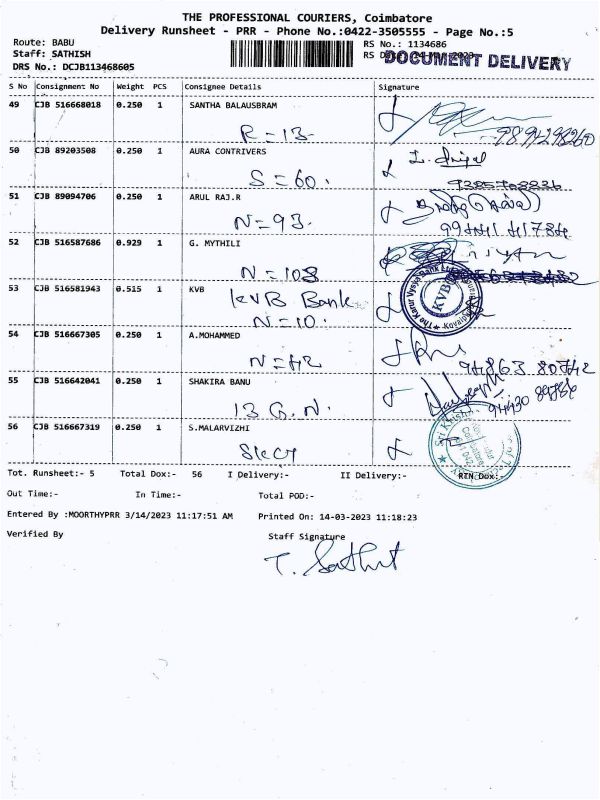 THE PROFESSIONAL COURIERS, Coimbatore
Delivery Runsheet - PRR - Phone No.:0422-3505555 - Page No.:5
Route: BABU
Staff: SATHISH
DRS No.: DCJB113468605
RS No.: 1134686
RS Date: 14-Mar-2023
DOCUMENT DELIVERY
S No Consignment No Weight PCS Consignee Details Signature
49 CJB 516668018 0.250 1 SANTHA BALAUSBRAM
R = 13
9894298260
50 CJB 89203508 0.250 1 AURA CONTRIVERS
S = 60.
51 CJB 89094706 0.250 1 ARUL RAJ.R
N = 93.
52 CJB 516587686 0.929 1 G. MYTHILI
N = 108
53 CJB 516581943 0.515 1 KVB
KVB Bank
N = 10.
The Karur Vysya Bank
KVB
54 CJB 516667305 0.250 1 A.MOHAMMED
N = 42
94863 80742
55 CJB 516642041 0.250 1 SHAKIRA BANU
13 G. N.
56 CJB 516667319 0.250 1 S.MALARVIZHI
Skct
Sri Krishna
Tot. Runsheet:- 5 Total Dox:- 56 I Delivery:- II Delivery:- RTN Dox:-
Out Time:- In Time:- Total POD:-
Entered By :MOORTHYPRR 3/14/2023 11:17:51 AM Printed On: 14-03-2023 11:18:23
Verified By Staff Signature
T. Sathit